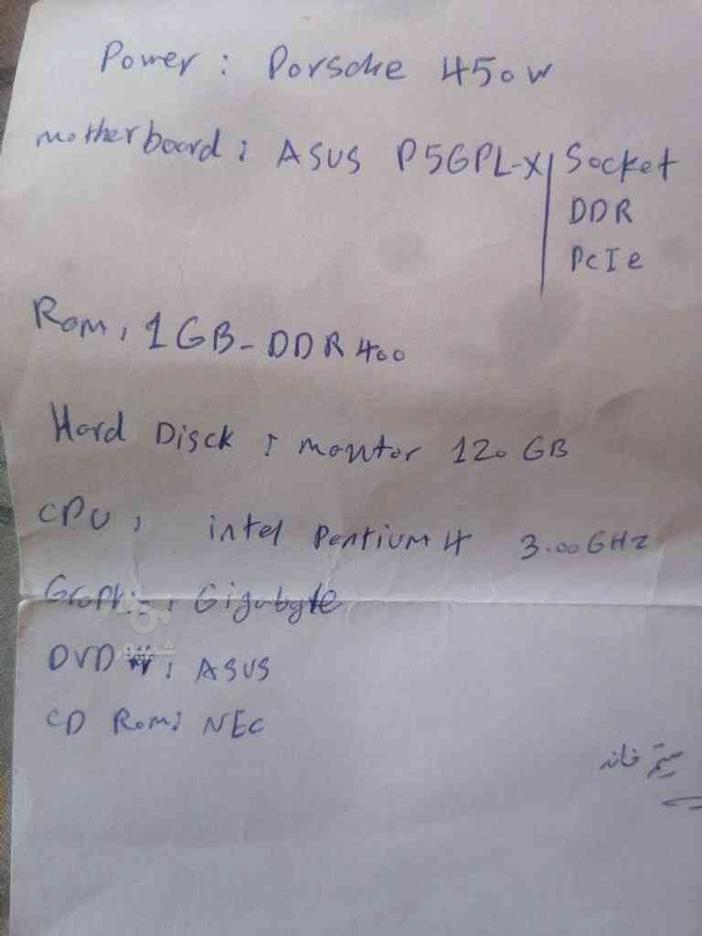 Power : Porsche 450 W
motherboard : ASUS P5GPL-X
Socket
DDR
PcIe
Ram, 1GB-DDR400
Hard Disck : maxtor 120 GB
CPU, intel Pentium 4 3.00GHZ
Graphic, Gigabyte
DVD : ASUS
CD Rom: NEC
خانه